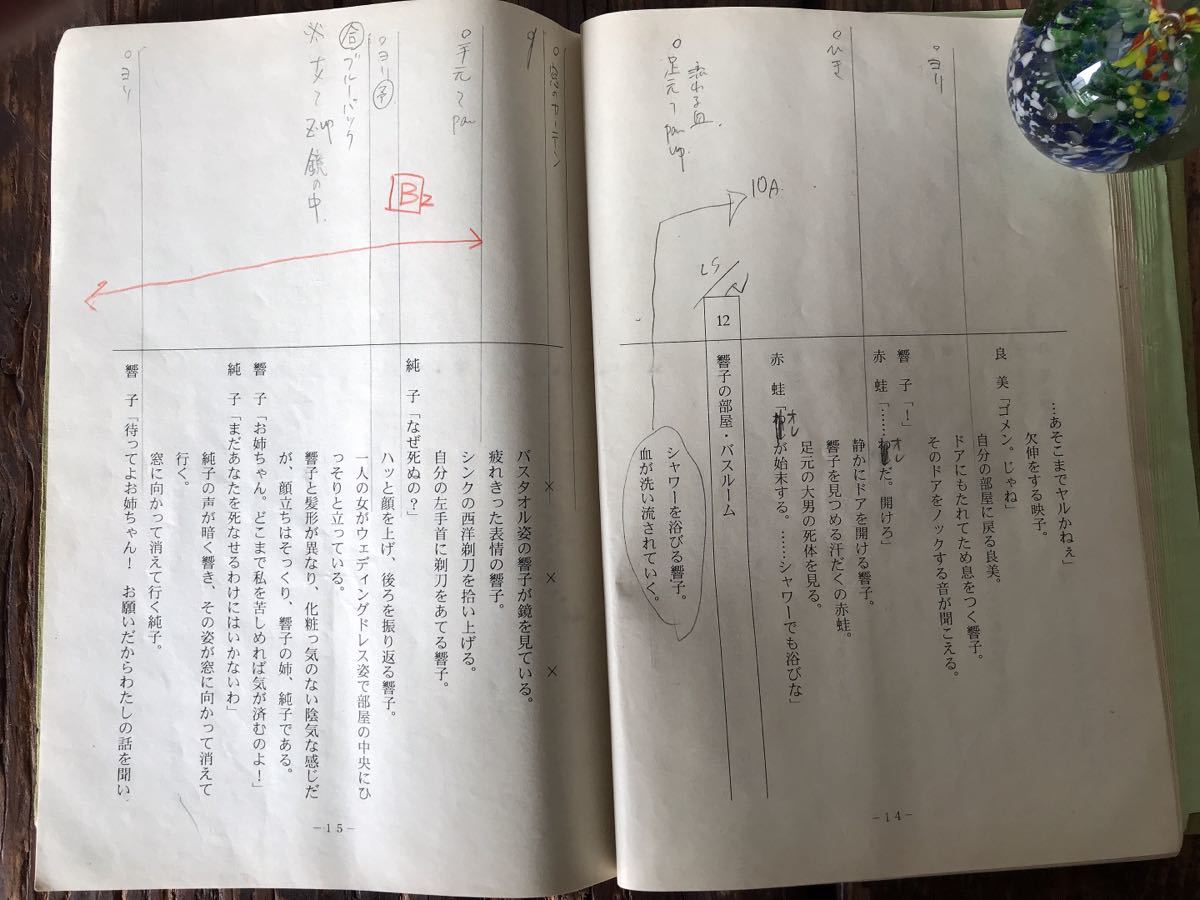 …あそこまでヤルかねぇ」
欠伸をする映子。
良　美「ゴメン。じゃね」
自分の部屋に戻る良美。
ドアにもたれてため息をつく響子。
そのドアをノックする音が聞こえる。
響　子「！」
赤　蛙「……オレだ。開けろ」
静かにドアを開ける響子。
響子を見つめる汗だくの赤蛙。
足元の大男の死体を見る。
赤　蛙「オレが始末する。……シャワーでも浴びな」
12
響子の部屋・バスルーム
シャワーを浴びる響子。
血が洗い流されていく。
ヨリ
ひき
流れる血.
足元〜pan up.
10A.
LS/N
－14－
×　×　×
バスタオル姿の響子が鏡を見ている。
疲れきった表情の響子。
シンクの西洋剃刀を拾い上げる。
自分の左手首に剃刀をあてる響子。
純　子「なぜ死ぬの？」
ハッと顔を上げ、後ろを振り返る響子。
一人の女がウェディングドレス姿で部屋の中央にひ
っそりと立っている。
響子と髪形が異なり、化粧っ気のない陰気な感じだ
が、顔立ちはそっくり、響子の姉、純子である。
響　子「お姉ちゃん。どこまで私を苦しめれば気が済むのよ！」
純　子「まだあなたを死なせるわけにはいかないわ」
純子の声が暗く響き、その姿が窓に向かって消えて
行く。
窓に向かって消えて行く純子。
響　子「待ってよお姉ちゃん！　お願いだからわたしの話を聞い
窓のカーテン
手元〜pan
ヨリ㋙
合 ブルーバック
※ 女〜Z・up 鏡の中.
ヨリ
B2
－15－